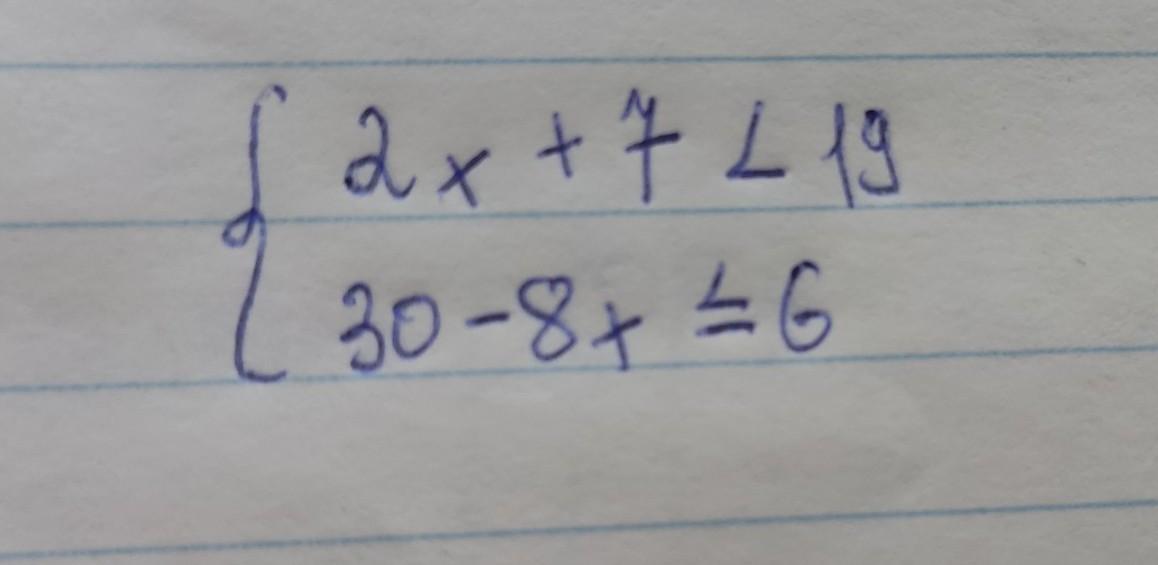 { 2x + 7 < 19
30 - 8x ≤ 6